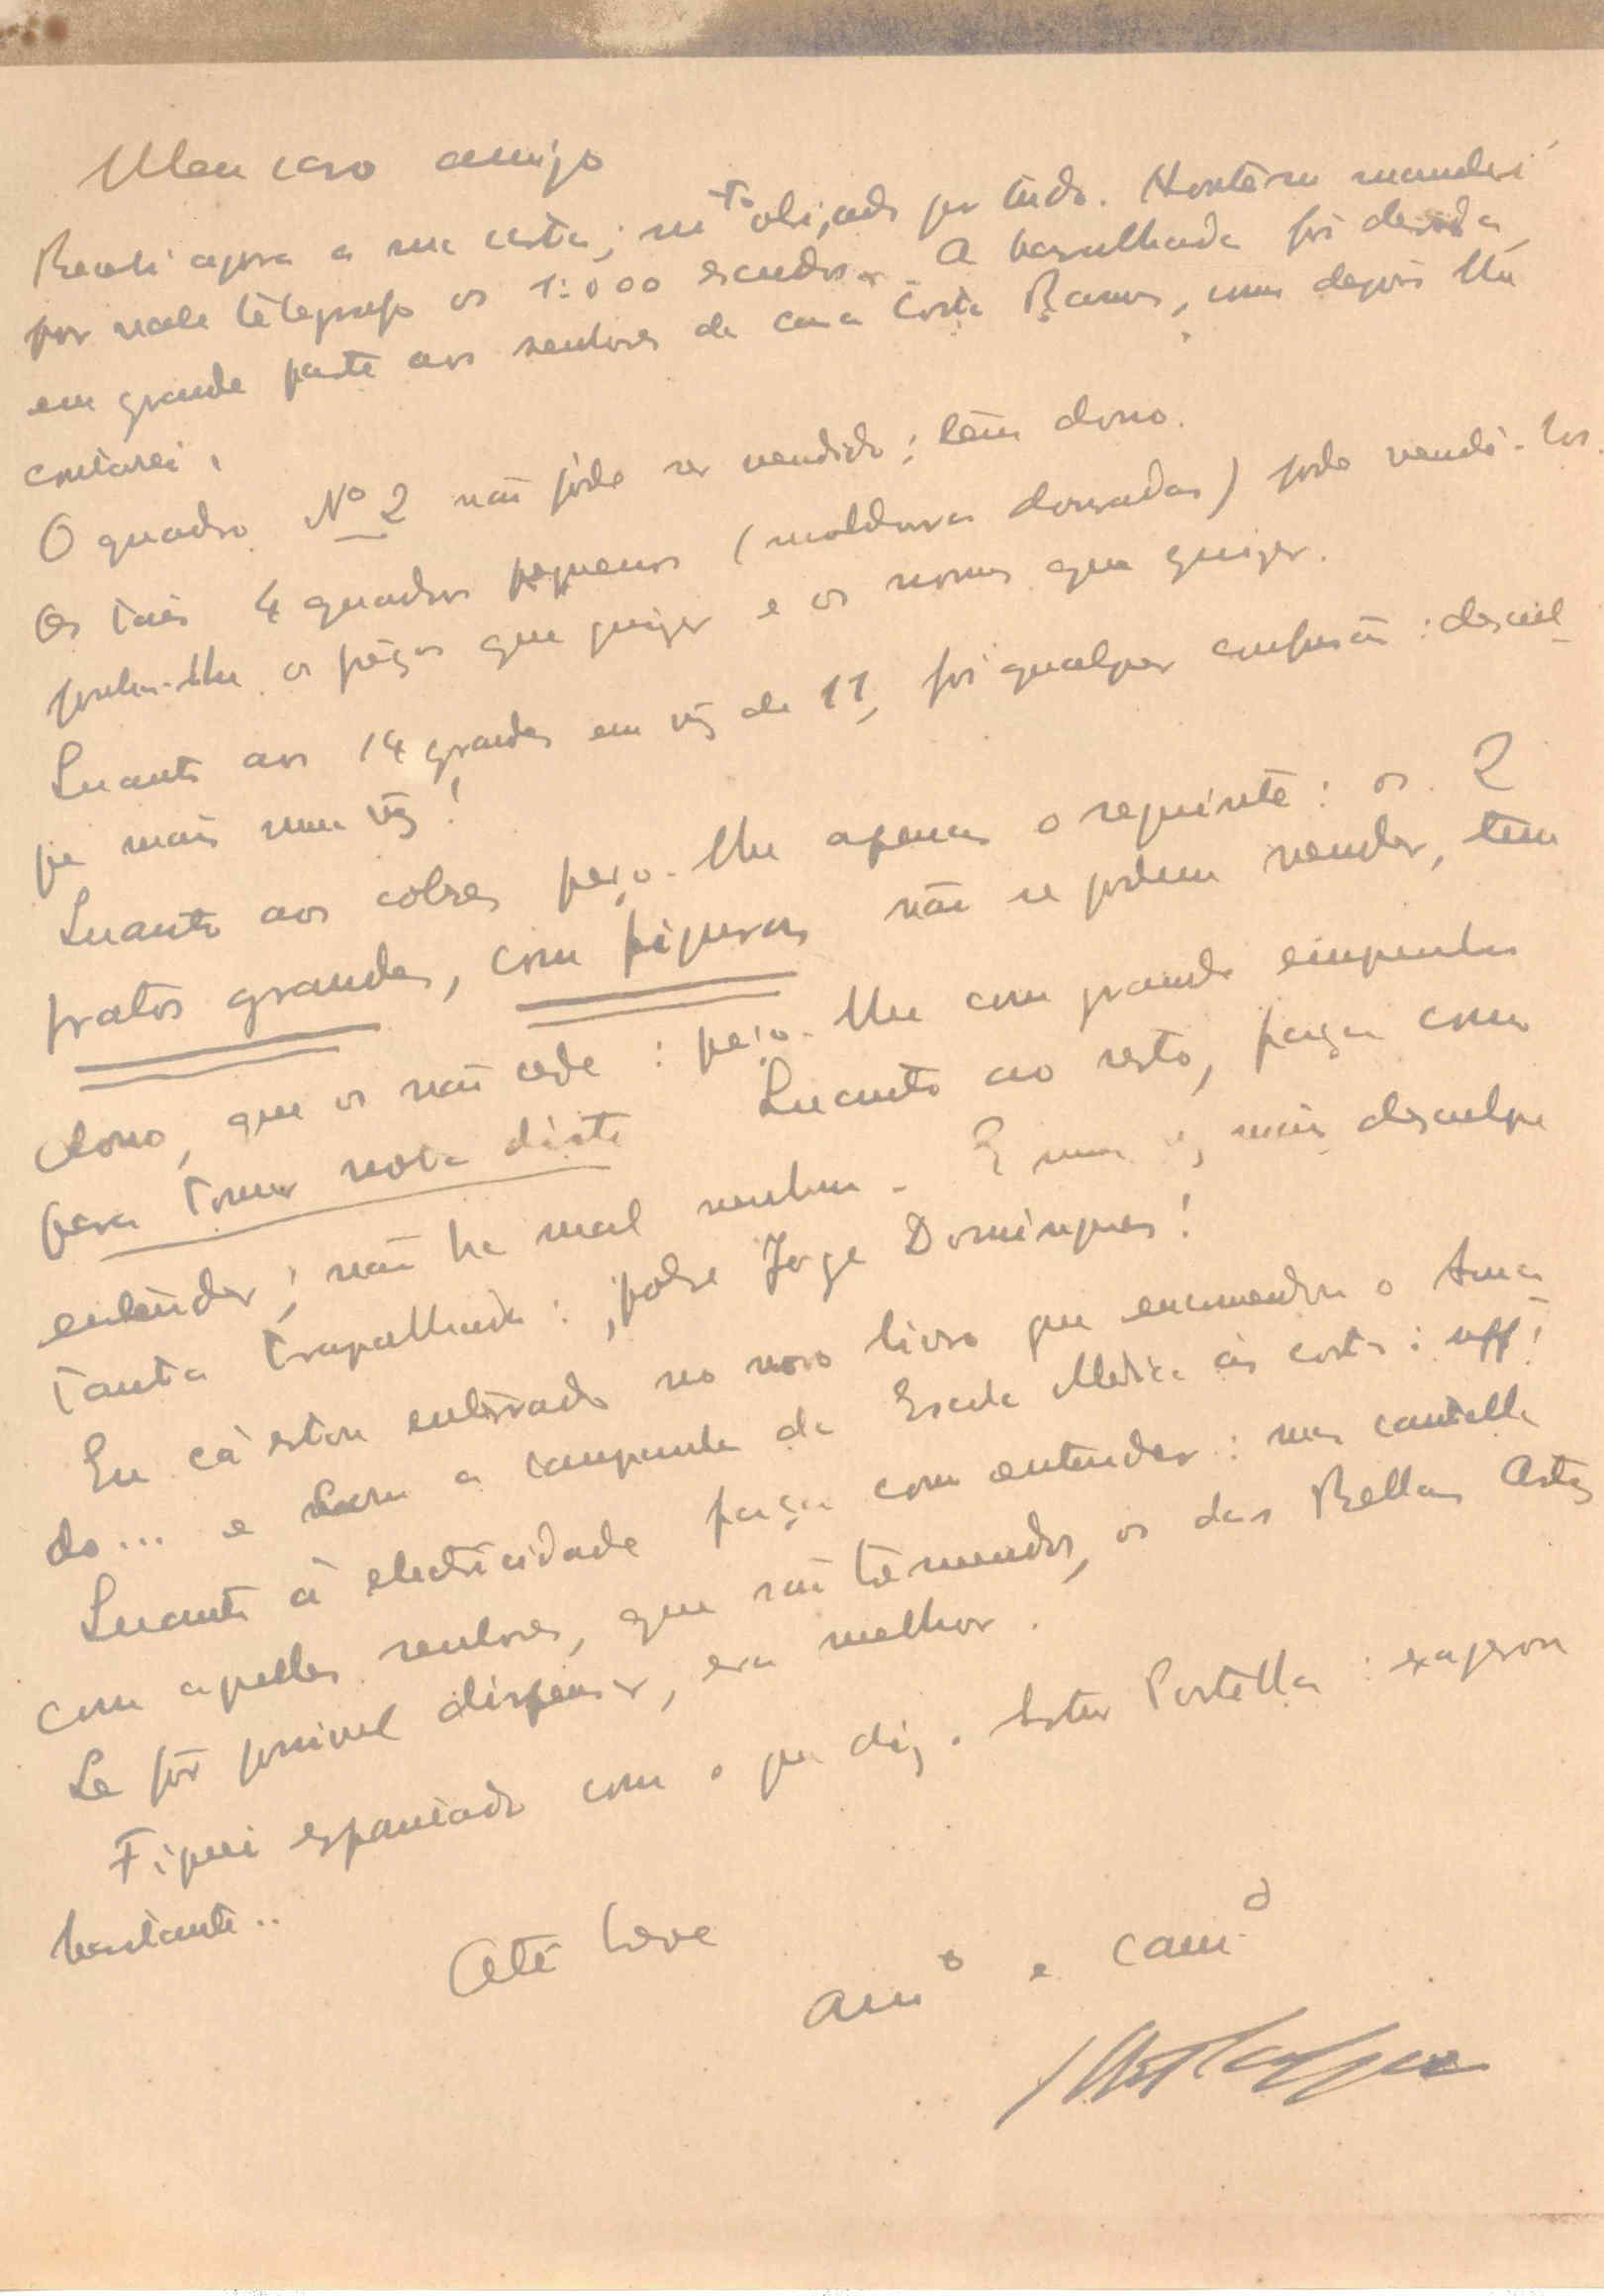 Meu caro amigo
Recebi agora a sua carta; mto obrigado por tudo. Hontem mandei
por vale telegrafo os 1:000 escudos. A barulhada foi devida,
em grande parte aos senhores da casa Costa Ramos, como depois lhe
contarei.
O quadro Nº 2 não póde ser vendido: tem dono.
Os taes 4 quadros pequenos (molduras douradas) pode vendê-los.
ponha-lhe os preços que quizer e os nomes que quizer.
Quanto aos 14 grandes em vez de 11, foi qualquer confusão: descul-
pe mais uma vez!
Quanto aos cobres peço-lhe apenas o seguinte: os 2
pratos grandes, com figuras não se podem vender, tem
dono, que os não cede: peço-lhe com grande empenho
para tomar nota disto Quanto ao resto, faça como
entender; não ha mal nenhum. E uma vez mais desculpe
tanta trapalhada: pobre Jorge Domingues!
Eu cá estou enterrado no novo livro que encomendou o Ama-
do... e com a campanha da Escola Medica ás costas: uff!
Quanto á electricidade faça como entender: mas cautella
com aquelles senhores, que são tremendos, os das Bellas Artes
Se fôr possivel dispensar, era melhor.
Fiquei espantado com o que diz o Portella: exagerou
bastante..
Até breve
amº e camª